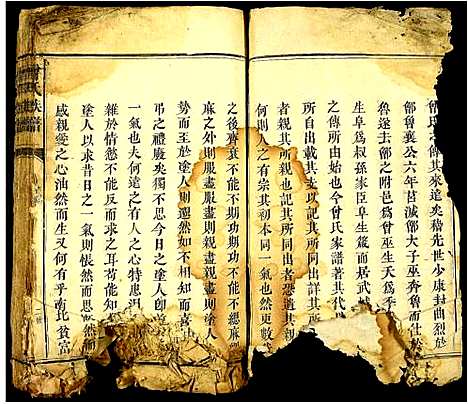 曾氏之傳其來遠矣稽先世少康封曲烈於
鄫魯襄公六年莒滅鄫大子巫奔魯而仕於
魯遂去鄫之附邑為曾巫生夭為季
阜生阜為叔孫家臣阜生蒧而居武城
之傳所由始也今曾氏家譜著其代
所自出載其支以記其所同出詳其
者親其所親也記其所同出者恐遺其親
何則人之有宗其初本同一氣也然更數
之後齊衰不能不期功期功不能不緦麻
麻之外則服盡服盡則親盡親盡則塗人
勢而至於塗人則邈然如不相知喜不
弔之禮廢矣獨不思今日之塗人即昔日
一氣也夫何遠之有人之心特患溺
雜於情慾不能反而求之耳苟能知
塗人以求昔日之一氣則悵然而思
感親愛之心油然而生又何有乎南北貧富
曾氏族譜